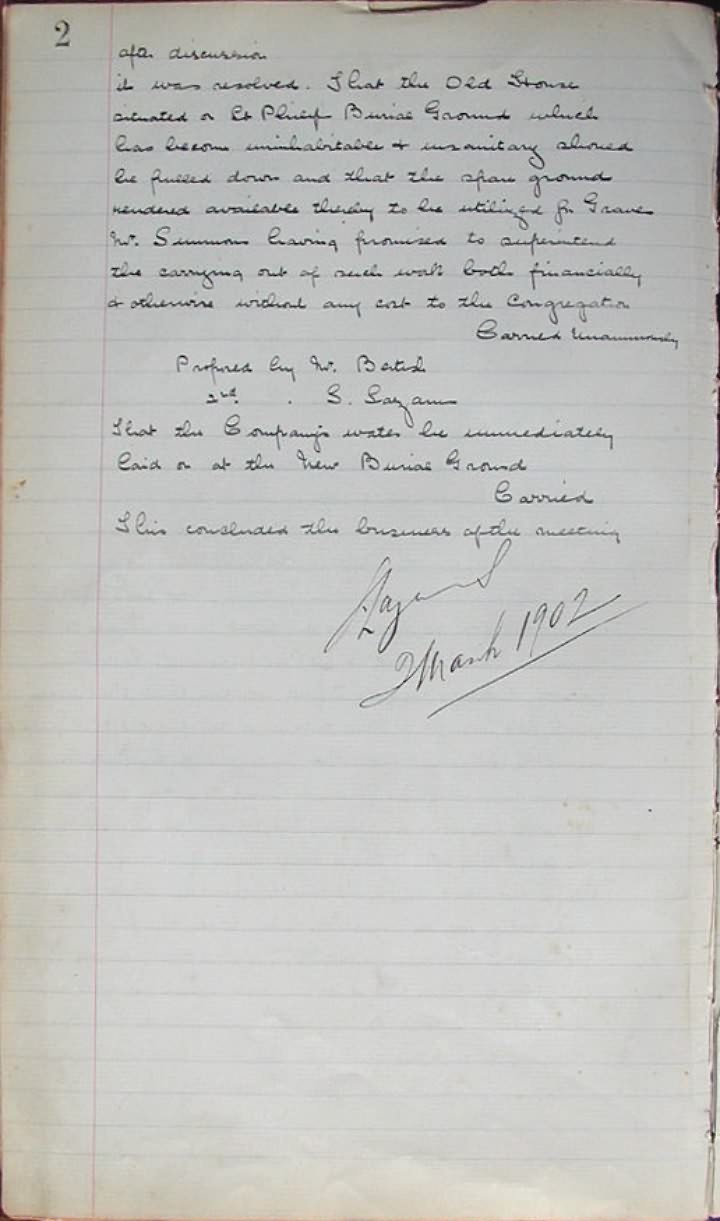 2
after discussion
it was resolved. That the Old House
situated on St Philip Burial Ground which
has become uninhabitable & unsanitary should
be pulled down and that the spare ground
rendered available thereby to be utilized for Graves
Mr. Simmons having promised to superintend
the carrying out of such work both financially
& otherwise without any cost to the Congregation
Carried Unanimously
Proposed by Mr.
2nd. . S. Lazarus
That the Company's water be immediately
laid on at the New Burial Ground
Carried
This concluded the business of the meeting
2 March 1902